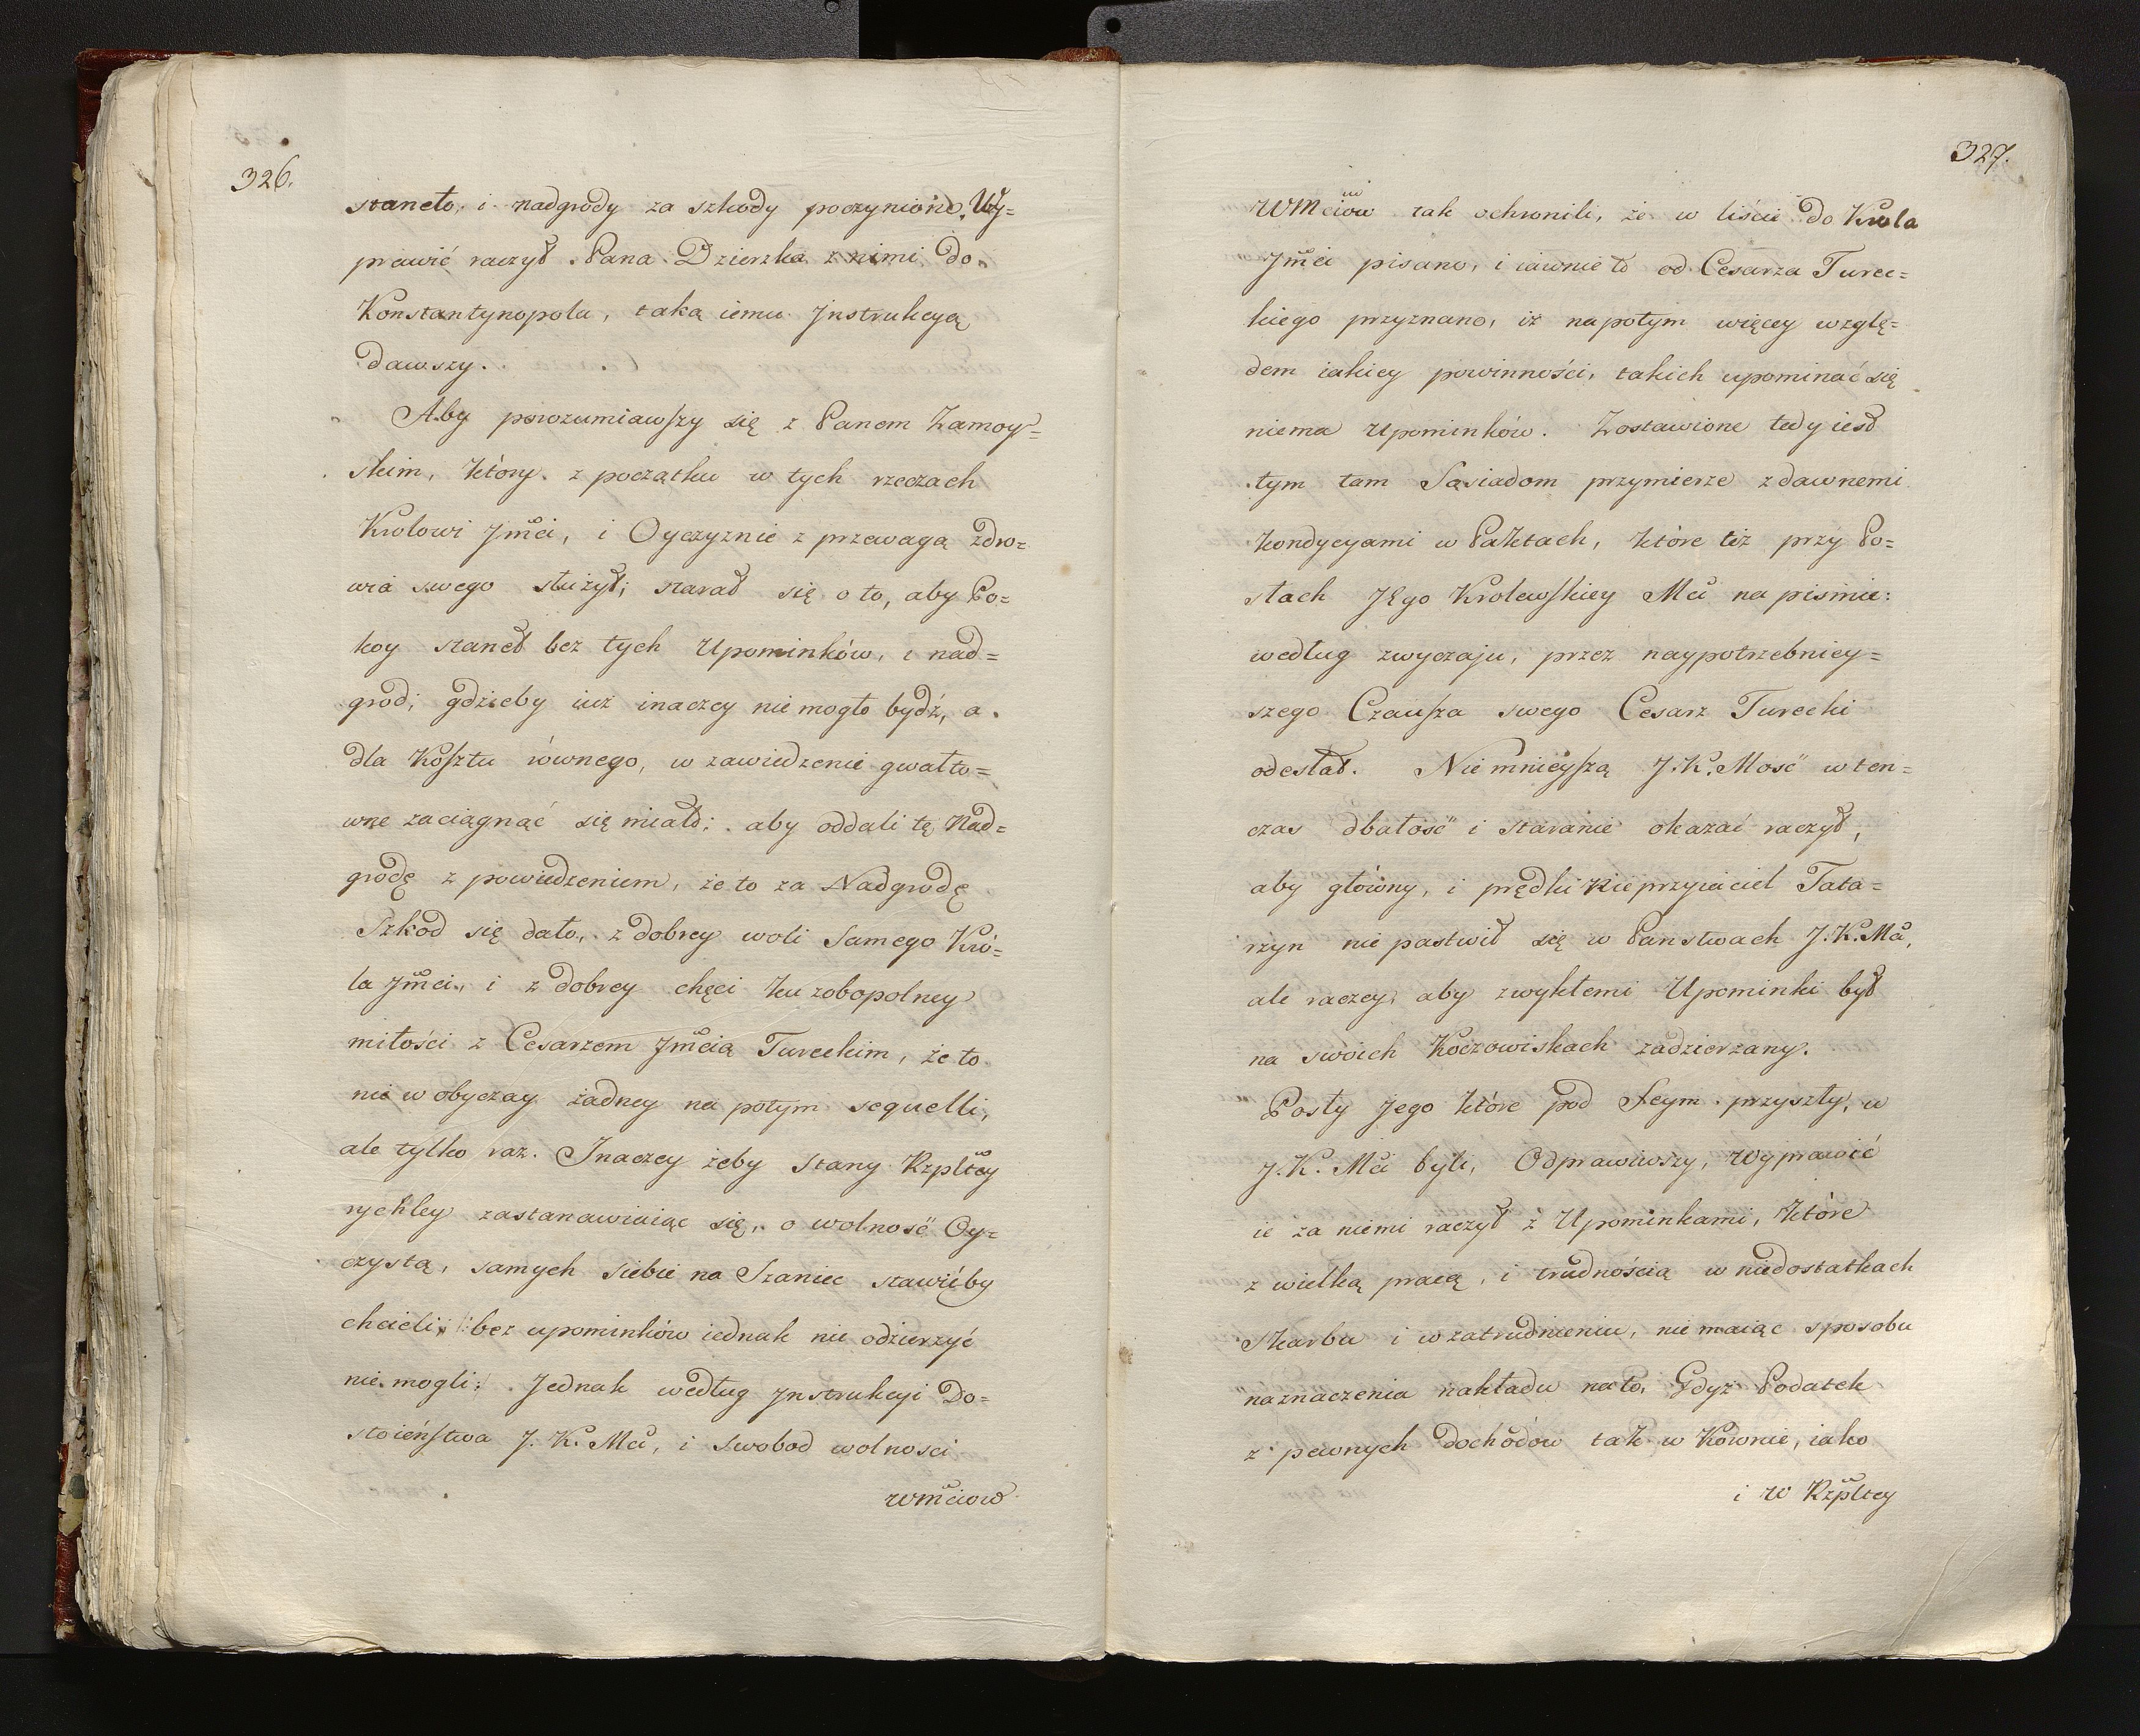 326.
staneło, i nadgrody za szkody poczynione, Wy=
prawić raczył Pana Dzierzka z nimi do
Konstantynopola, taką iemu Jnstrukcyą
dawszy.
Aby porozumiawszy się z Panem Zamoy=
skim, który z początku w tych rzeczach
Krolowi Jmci, i Oyczyznie z przewagą zdro=
wia swego służył; starał się o to, aby Po=
koy stanął bez tych Upominków, i nad=
gród; gdzieby iuż inaczey nie mogło bydź, a
dla Kosztu równego, w zawiedzenie gwałto=
wne zaciągnąć się miało; aby oddali tę Nad=
grodę z powiedzeniem, że to za Nadgrodę
Szkod się dało, z dobrey woli Samego Kró=
la Jmci, i z dobrey chęci ku zobopolney
miłości z Cesarzem Jmcią Tureckim, że to
nie w obyczay żadney na potym sequelli,
ale tylko raz. Jnaczey żeby Stany Rzpltey
rychley zastanawiaiąc się, o wolność Oy=
czystą, samych siebie na Szaniec stawićby
chcieli, /:bez upominków iednak nie odzierzyć
nie mogli:/ Jednak według Jnstrukcyi Do=
stoieństwa J. K. Mci, i Swobod wolnosci
WMciow
327.
WMciow tak ochronili, że w liście do Krola
Jmci pisano, i iawnie to od Cesarza Turec=
kiego przyznano, iż napotym więcey wzglę=
dem iakiey powinności, takich upominać się
niema Upominków. Zostawione tedy iest
tym tam Sąsiadom przymierze z dawnemi
kondycyami w Paktach, które też przy Po=
słach Jego Krolewskiey Mci na pismie
według zwyczaju, przez naypotrzebniey=
szego Czausza swego Cesarz Turecki
odesłał. Nie mnieyszą J. K. Mość w ten=
czas dbałość i staranie okazać raczył,
aby główny, i prędki Nieprzyiaciel Tata=
rzyn nie pastwił się w Panstwach J. K. Mci,
ale raczey, aby zwykłemi Upominki był
na swoich Koczowiskach zadzierzany.
Posły Jego które pod Seym przyszły, u
J. K. Mci byli, Odprawiwszy, Wyprawić
ie za niemi raczył z Upominkami, które
z wielką pracą, i trudnością w niedostatkach
Skarbu i w zatrudnieniu, nie maiąc sposobu
naznaczenia nakładu na to, Gdyż Podatek
z pewnych dochódów tak w Kownie, iako
i W Rzpltey